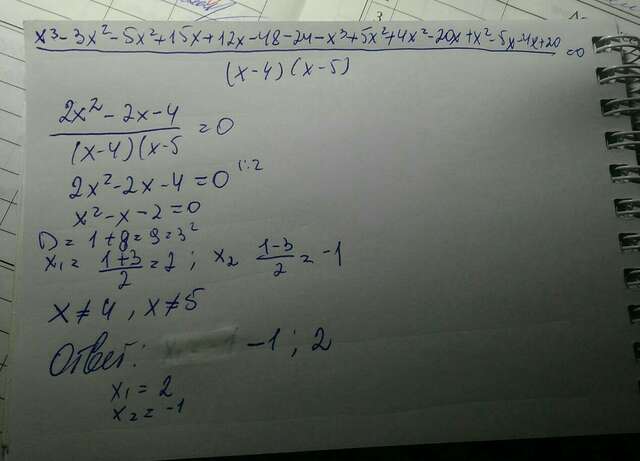 x³-3x²-5x²+15x+12x-48-24-x³+5x²+4x²-20x+x²-5x-4x+20 =0
(x-4)(x-5)
2x²-2x-4 =0
(x-4)(x-5
2x²-2x-4=0 |:2
x²-x-2=0
D=1+8=9=3²
x₁= 1+3/2 =2; x₂ 1-3/2 = -1
x≠4, x≠5
Ответ: -1; 2
x₁=2
x₂=-1